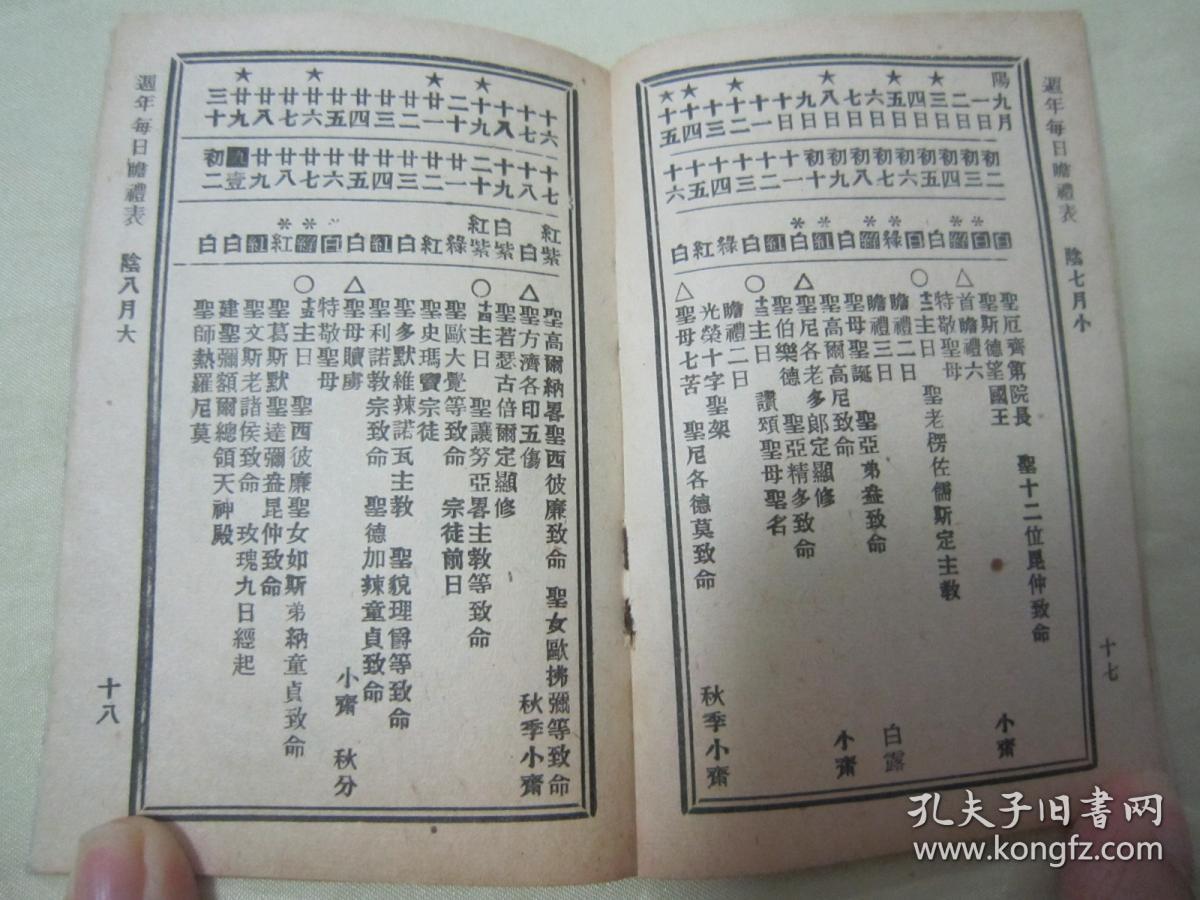 週年每日瞻禮表 陰七月小 十七
陽九月
一日 初二 白 聖厄齊第院長 聖十二位昆仲致命
二日 初三 * 白 聖斯德望國王
★ 三日 初四 * 綠 △ 首瞻禮六 小齋
四日 初五 白 特敬聖母
★ 五日 初六 白 ○ 十二主日 聖老楞佐儒斯定主教
六日 初七 * 綠 瞻禮二日
七日 初八 * 綠 瞻禮三日
★ 八日 初九 白 聖母聖誕 聖亞弟盎致命 白露
九日 初十 * 紅 聖高爾高尼致命
十日 十一 * 白 △ 聖尼各老多郎定顯修 小齋
十一 十二 紅 聖伯樂德 聖亞精多致命
★ 十二 十三 白 ○ 十三主日 讚頌聖母聖名
十三 十四 綠 瞻禮二日
★ 十四 十五 紅 光榮十字聖架
★ 十五 十六 白 △ 聖母七苦 聖尼各德莫致命 秋季小齋
十六 十七 紅紫 聖高爾納畧聖西彼廉致命 聖女歐拂彌等致命
十七 十八 白 △ 聖方濟各印五傷 秋季小齋
十八 十九 白紫 聖若瑟古倍爾定顯修
★ 十九 二十 紅紫 ○ 十四主日 聖讓努亞畧主教等致命
二十 廿一 綠 聖歐大覺等致命 宗徒前日
★ 廿一 廿二 紅 聖史瑪竇宗徒
廿二 廿三 白 聖多默維辣諾瓦主教 聖貌理爵等致命
廿三 廿四 紅 聖利諾教宗致命 聖德加辣童貞致命
廿四 廿五 白 △ 聖母贖虜 小齋 秋分
廿五 廿六 * 白 特敬聖母
★ 廿六 廿七 * 綠 ○ 十五主日 聖西彼廉聖女如斯弟納童貞致命
廿七 廿八 * 紅 聖葛斯默聖達彌盎昆仲致命
廿八 廿九 紅 聖文斯老諸侯致命 玫瑰九日經起
★ 廿九 九壹 白 建聖彌額爾總領天神殿
三十 初二 白 聖師熱羅尼莫
週年每日瞻禮表 陰八月大 十八
孔夫子旧书网
www.kongfz.com